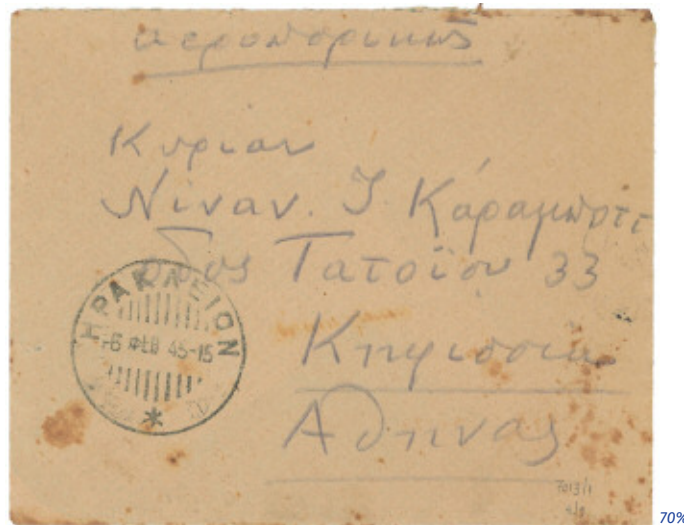 αεροπορικώς
Κυρίαν
Νίναν. Ι Κάραμπρτ
οδος Τατοΐου 33
Κηφισσια
Αθηνας
ΗΡΑΚΛΕΙΟΝ
-6 ΦΕΒ 45-15
*
70%